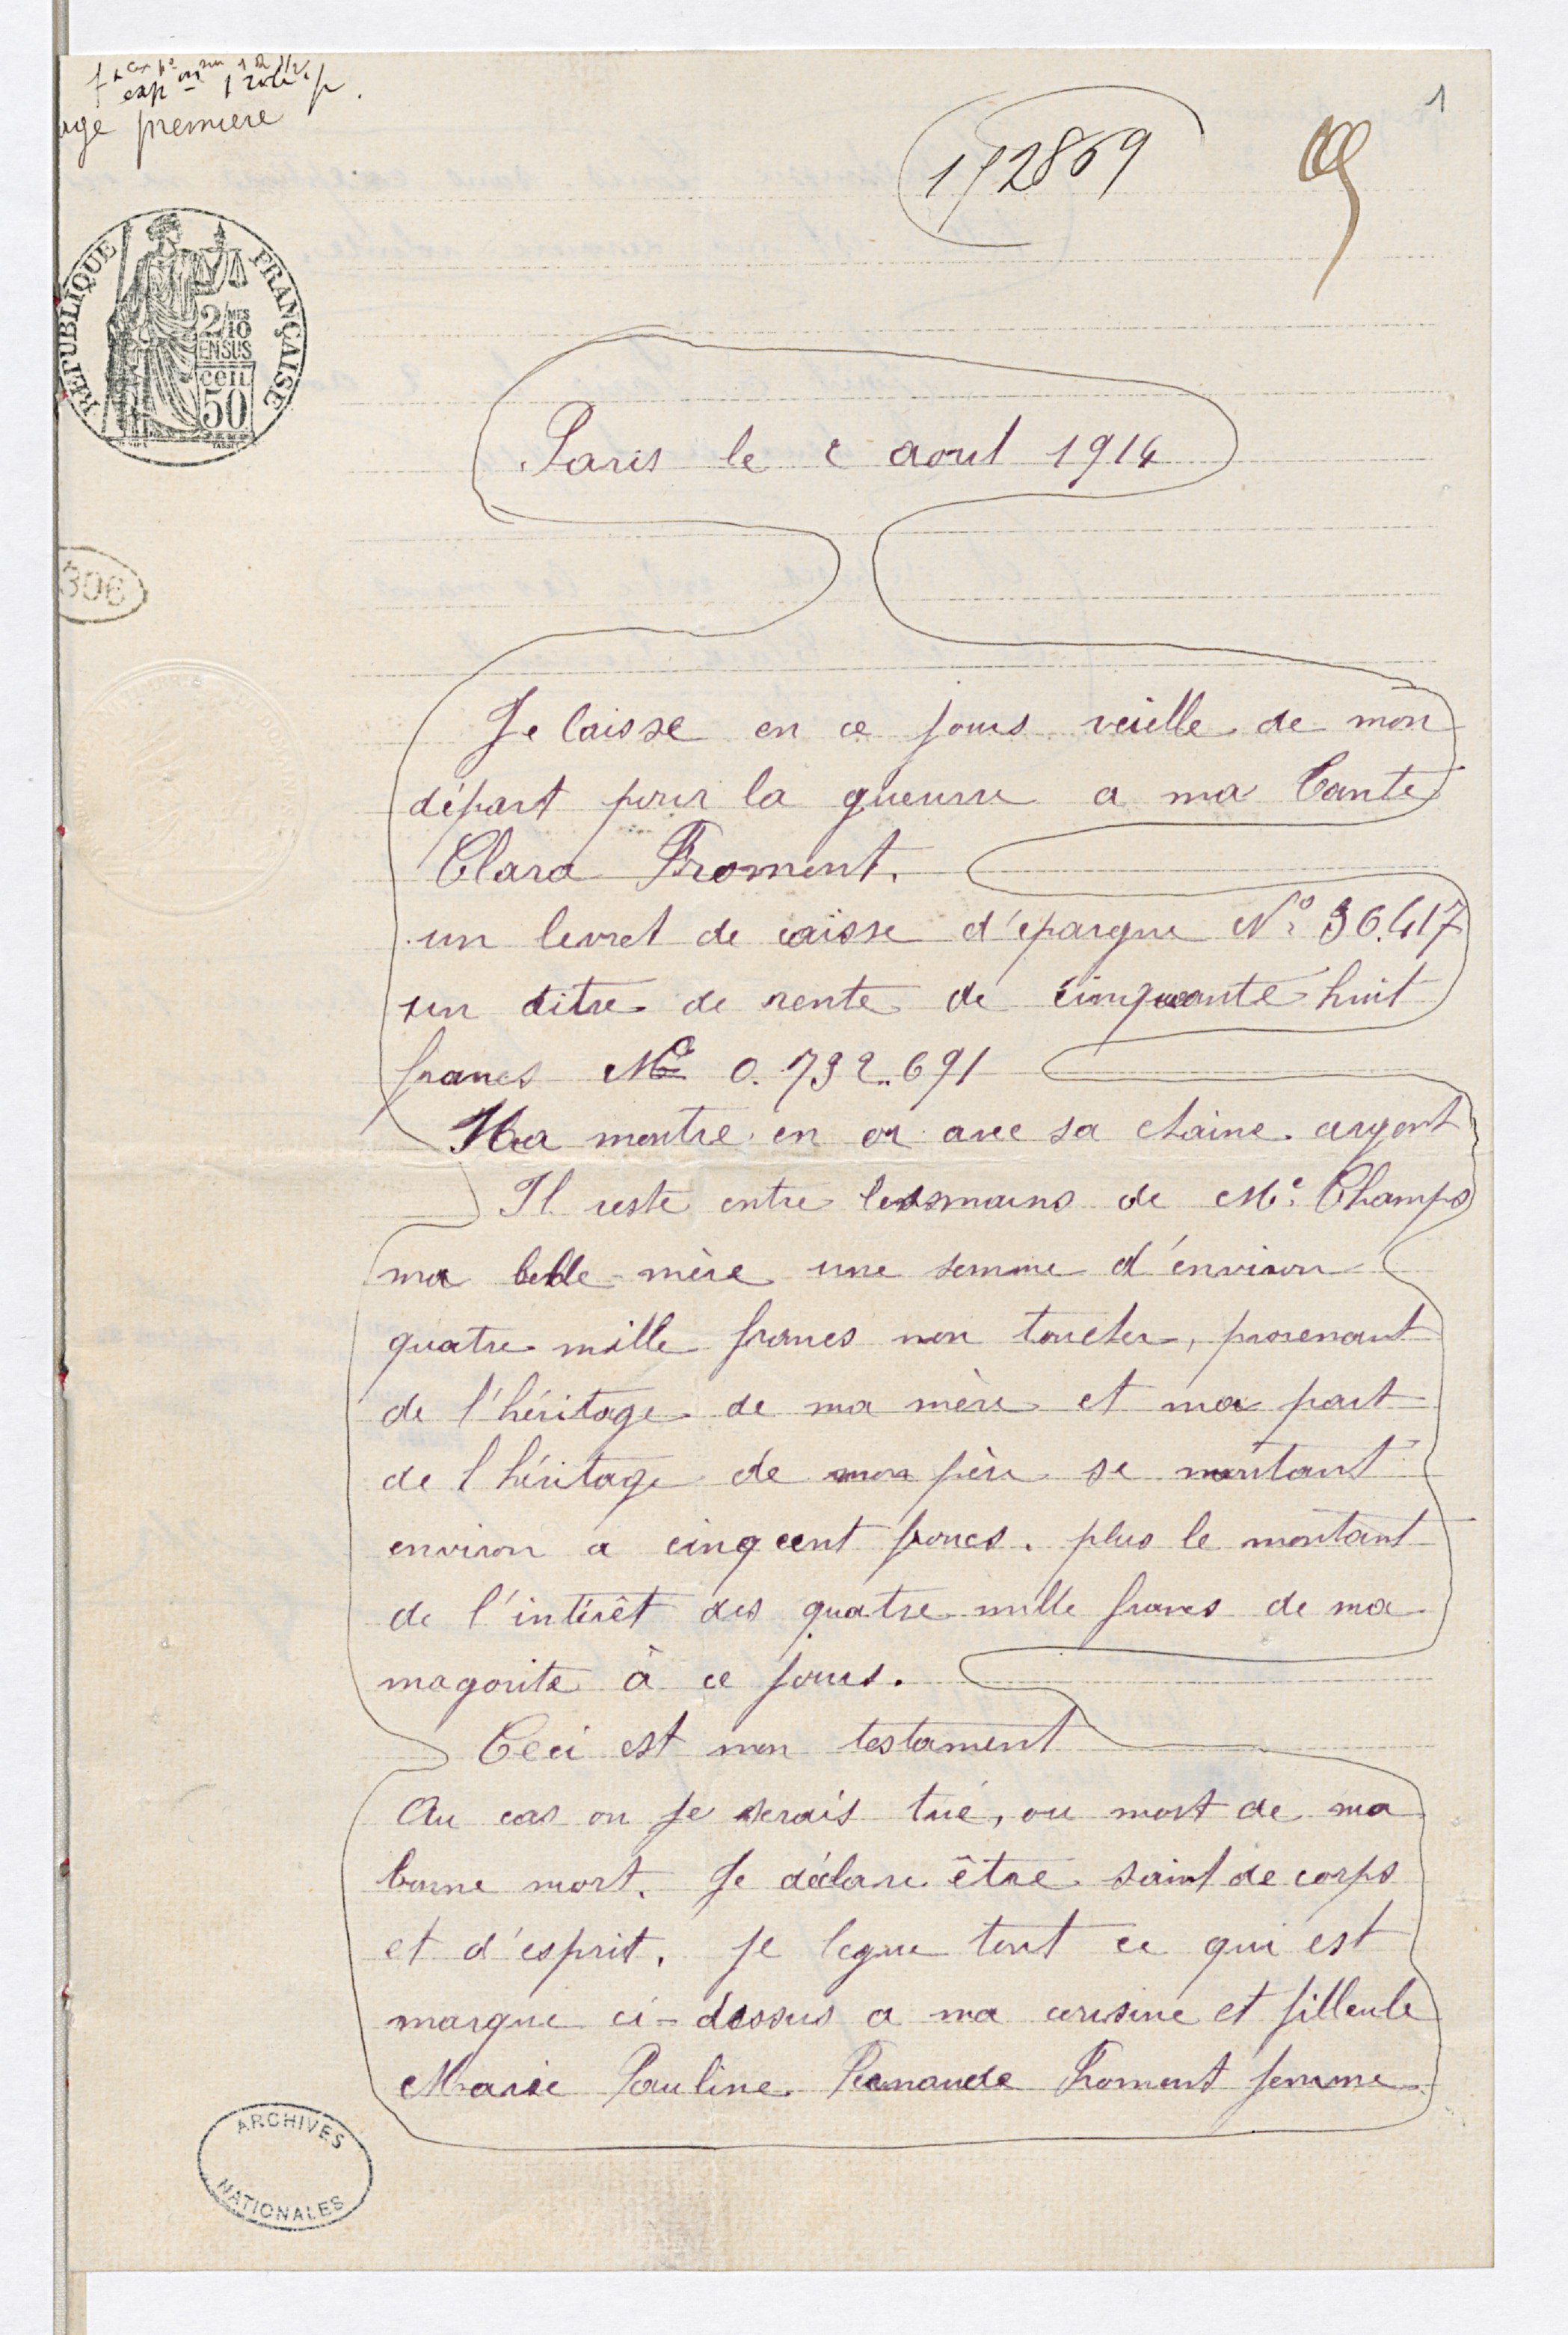 page premiere
1
172869
RÉPUBLIQUE FRANÇAISE
2/10MES
EN SUS
50 cen
306
Paris le 2 aout 1914
Je laisse en ce jours veielle de mon
départ pour la gueurre a ma Tante
Clara Froment.
un levret de caisse d'epargne No 36.417
un titre de rente de cinquante huit
francs No 0.792.691
Ma montre en or avec sa chaine argent
Il reste entre les mains de Me Champs
ma belle-mère une somme d'environ
quatre mille francs non toucher, provenant
de l'héritage de ma mère et ma part
de l héritage de mon père se montant
environ a cinq cent francs. plus le montant
de l'intérêt des quatre mille francs de ma
magorite à ce jours.
Ceci est mon testament
Au cas ou je serais tué, ou mort de ma
bonne mort. Je déclare être saint de corps
et d'esprit. je legue tout ce qui est
marque ci-dessus a ma cousine et filleule
Marie Pauline Fernande Froment femme
ARCHIVES
NATIONALES